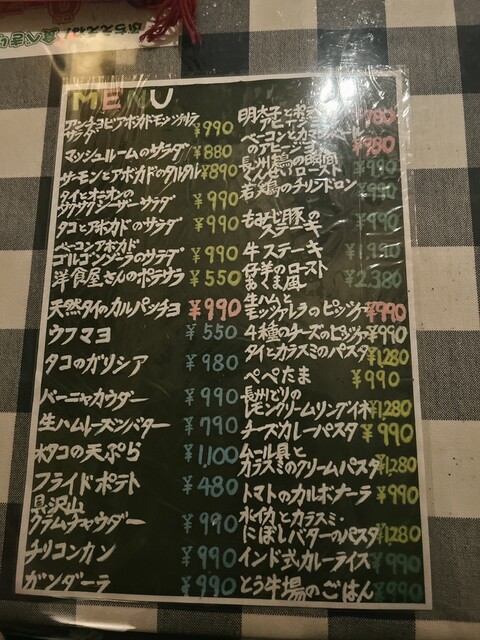 MENU
アンチョビアボカドモッツァレラ
サラダ ¥990
マッシュルームのサラダ ¥880
サーモンとアボカドのタルタル ¥890
タイとオニオンの
サクサクシーザーサラダ ¥990
タコとアボカドのサラダ ¥990
ベーコンアボカド
ゴルゴンゾーラのサラダ ¥990
洋食屋さんのポテサラ ¥550
天然タイのカルパッチョ ¥990
ウフマヨ ¥550
タコのガリシア ¥980
バーニャカウダー ¥990
生ハムレーズンバター ¥790
水タコの天ぷら ¥1,100
フライドポテト ¥480
具沢山
クラムチャウダー ¥990
チリコンカン ¥990
ガンダーラ ¥990
明太子と
ベーコンとカマンベール
のアヒージョ ¥980
長州鶏の瞬間
くんせいロースト ¥990
若鶏のチリンドロン ¥990
もみじ豚の
ステーキ ¥990
牛ステーキ
仔羊のロースト
風 ¥2,380
生ハムと
モッツァレラのピッツァ ¥990
4種のチーズのピッツァ ¥990
タイとカラスミのパスタ ¥1,280
ペペたま ¥990
長州どりの
レモンクリームリングイネ ¥1,280
チーズカレーパスタ ¥990
ムール貝と
カラスミのクリームパスタ ¥1,280
トマトのカルボナーラ ¥990
水イカとカラスミ・
にぼしバターのパスタ ¥1,280
インド式カレーライス ¥990
とう牛場のごはん ¥990